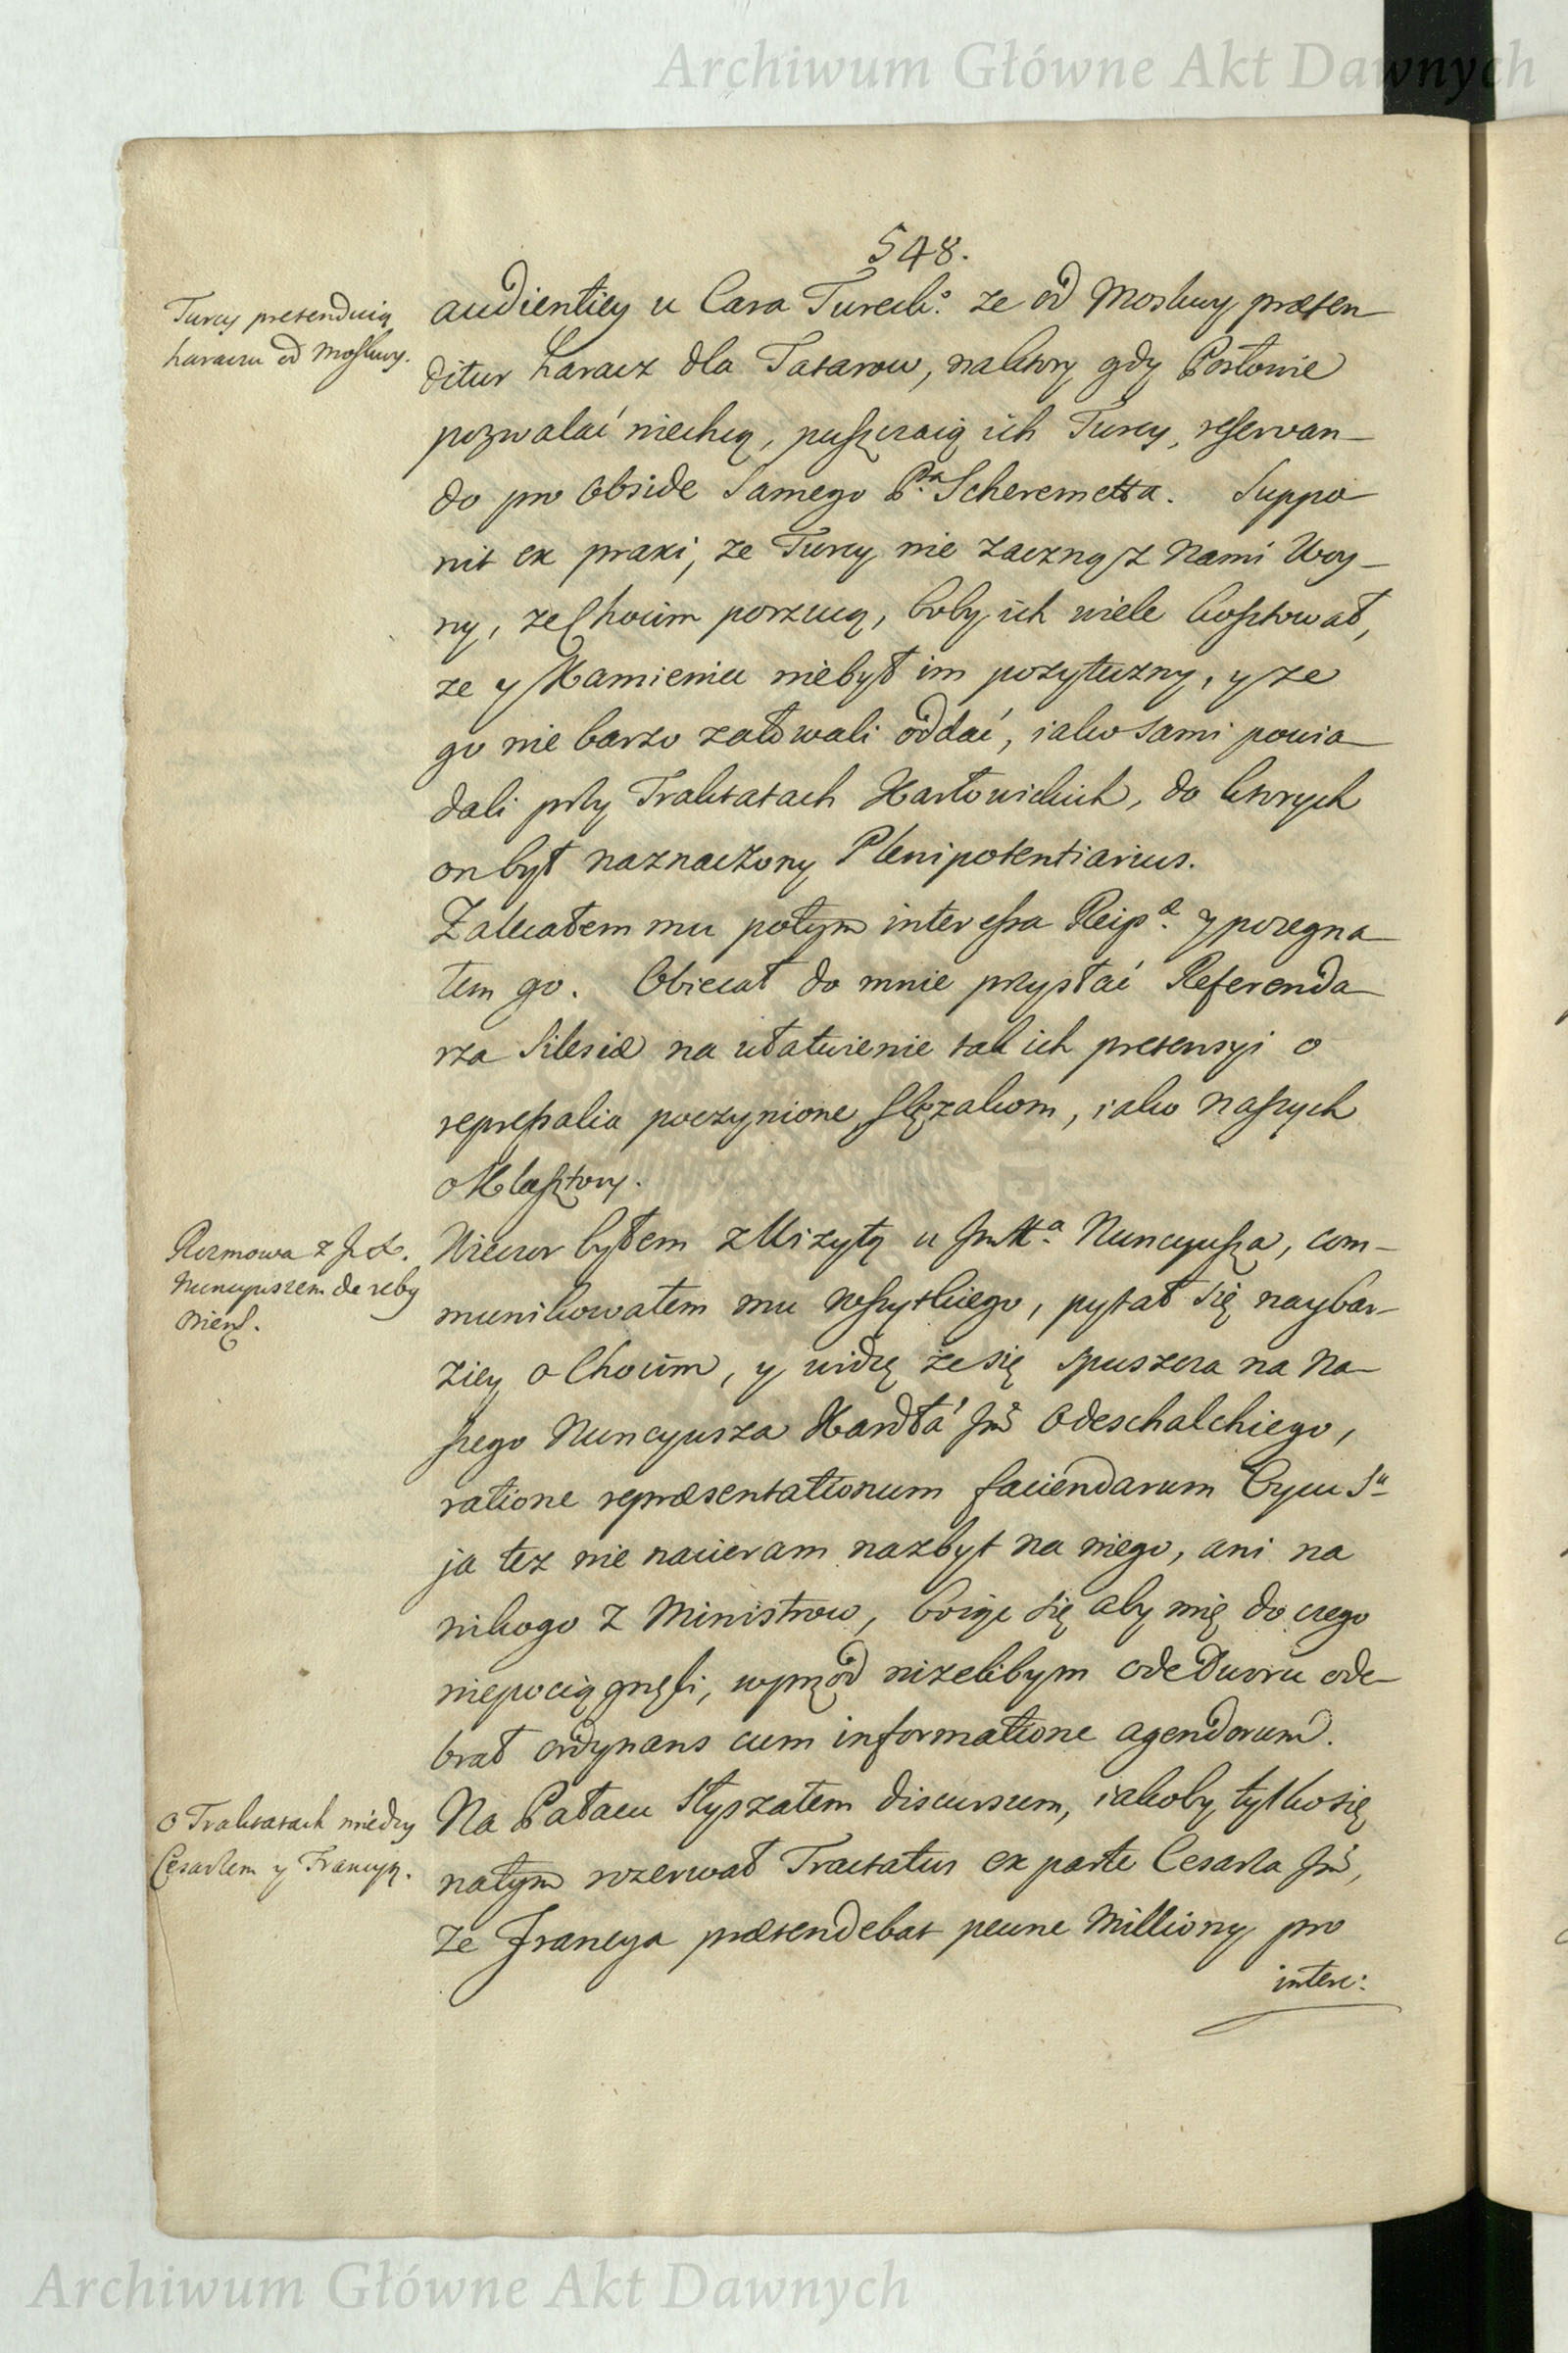 Archiwum Główne Akt Dawnych
548.
Turcy pretenduią
haraczu od Moskwy.
audientiey u Cara Tureck: ze od Moskwy præten-
ditur haracz dla Tatarow, naktory gdy Posłowie
pozwalać niechcą, puszczaią ich Turcy, reservan-
do pro Obside samego Pa Scheremetta. Suppo-
nit ex praxi, ze Turcy nie zaczną z Nami Woy-
ny, ze Chocim porzucą, boby ich wiele kosztował,
ze y Kamieniec niebył im pozyteczny, y ze
go nie barzo załowali oddać, iako sami powia-
dali przy Traktatach Karłowickich, do ktorych
on był naznaczony Plenipotentiarius.
Zalecałem mu potym interessa Reip. y pozegna-
łem go. Obiecał do mnie przysłać Referenda-
rza Silesiæ na ułatwienie tak ich pretensyi o
repressalia poczynione Slęzakom, iako naszych
o Klasztory.
Rozmowa z J. X.
Nuncyuszem de reby
Wieczor byłem z Wizytą u JmXa Nuncyusza, com-
munikowałem mu wszytkiego, pytał się naybar-
ziey o Chocim, y widzę że się spuszcza na Na-
szego Nuncyusza Kardła Jmci Odeschalchiego,
ratione repræsentationum faciendarum Oycu S.
ja tez nie nacieram nazbyt na niego, ani na
nikogo z Ministrow, boiąc się aby mię do czego
niepociągnęli, wprzod nizelibym ode Dworu ode-
brał ordynans cum informatione agendorum.
O Traktatach miedzy
Cesarzem y Francyą.
Na Pałacu słyszałem discursum, iakoby tylko się
natym rozerwał Tractatus ex parte Cesarza Jmci,
ze Francya prætendebat pewne Milliony pro
interc:
Archiwum Główne Akt Dawnych